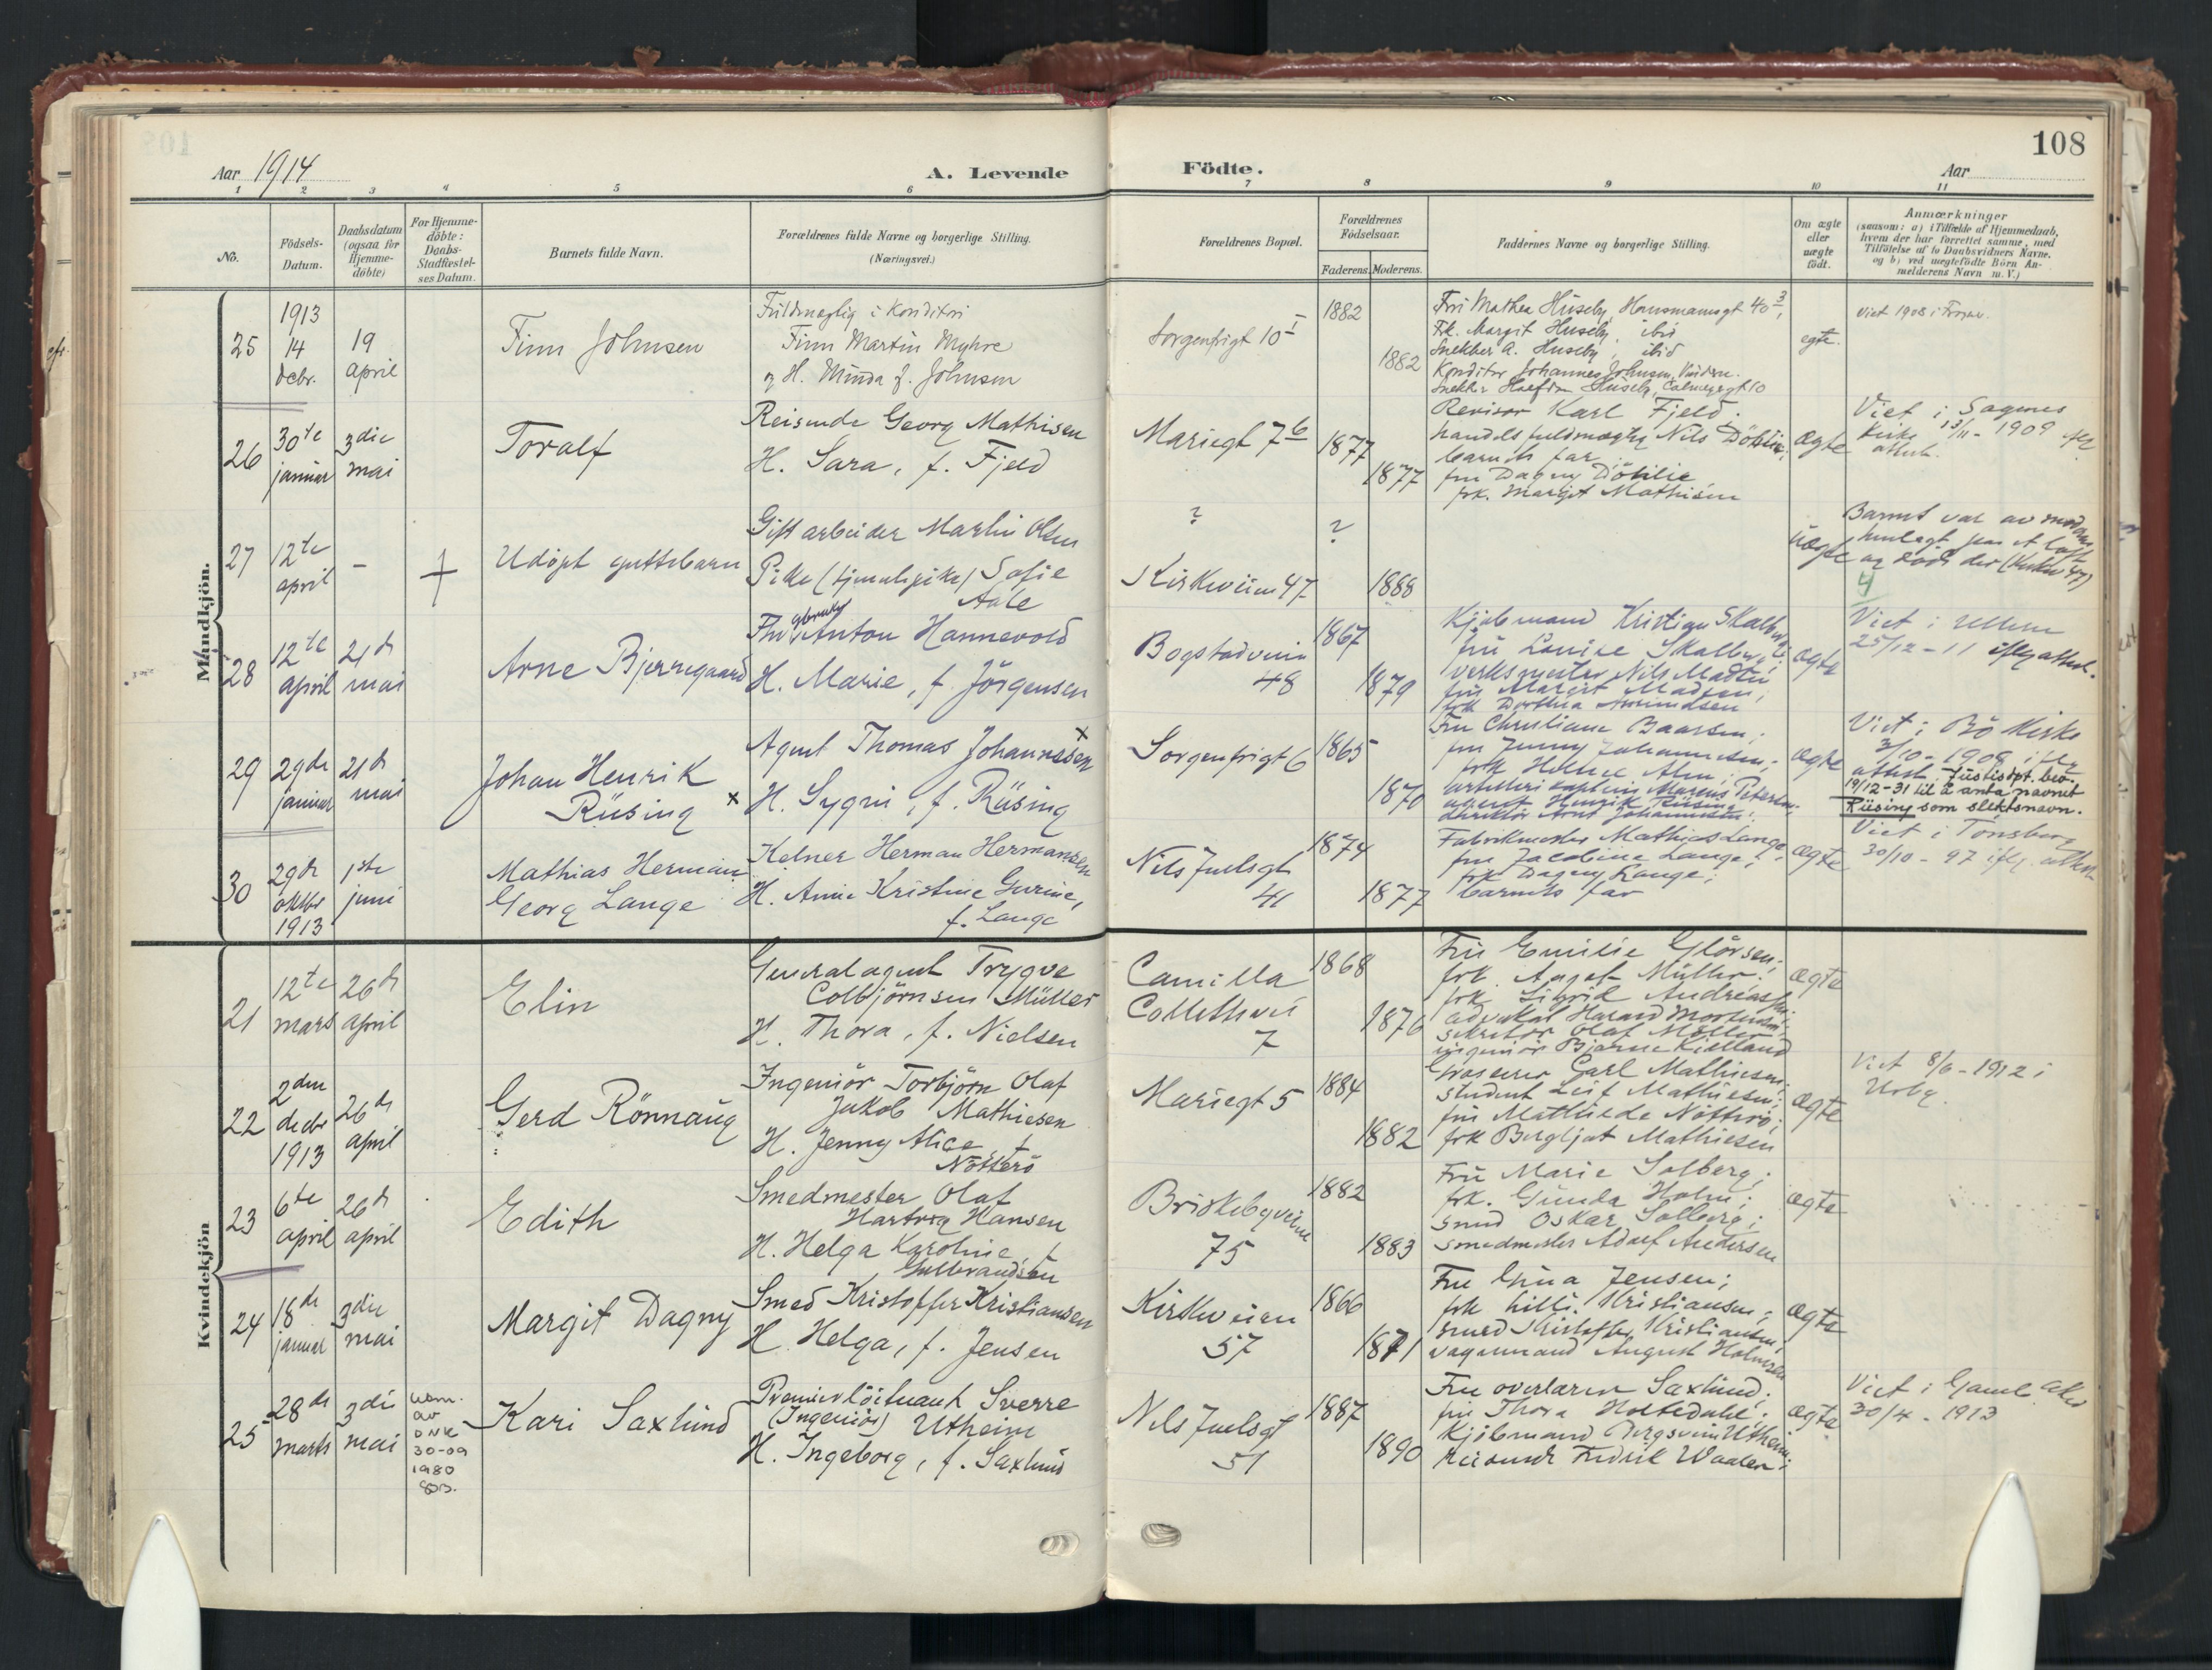 108
Aar 1914
A. Levende
Födte.
Aar
1 2 3 4 5 6 7 8 9 10 11
No.
Födsels-
Datum.
Daabsdatum
(ogsaa for
Hjemme-
döbte)
For Hjemme-
döbte:
Daabs-
Stadfæstel-
ses Datum.
Barnets fulde Navn.
Forældrenes fulde Navne og borgerlige Stilling.
(Næringsvei.)
Forældrenes Bopæl.
Forældrenes
Födselsaar.
Faderens. Moderens.
Faddernes Navne og borgerlige Stilling.
Om ægte
eller
uægte
födt.
Anmærkninger
(saasom: a) i Tilfælde af Hjemmedaab,
hvem der har forrettet samme, med
Tilföielse af to Daabsvidners Navne.
og b) ved uægtefödte Börn An-
melderens Navn m. V.)
Mandkjön.
25
1913
14
decbr.
19
april
Finn Johnsen
Fuldmægtig i Konditori
Finn Martin Myhre
og H. Minda f. Johnsen
Sorgenfrigt 10 I
1882
1882
Fru Mathea Huseby, Hausmannsgt 40 3,
Frk. Margit Huseby, ibid
Snekker A. Huseby, ibid
Konditor Johannes Johnsen,
Snekker Halfdan Huseby, Calmeyersgt 10
egte.
Viet 1908 i
26
30te
januar
3die
mai
Toralf
Reisende Georg Mathisen
H. Sara, f. Fjeld
Mariegt 7 6
1877
1877
Revisor Karl Fjeld.
handelsfuldmægtig Nils
barnets far
fru Dagny
frk. Margit Mathisen
ægte
Viet i Sagenes
kirke 13/11 - 1909 iflg
attest.
27
12te
april
–
+
Udöpt guttebarn
Gift arbeider Martin Olsen
Pike (tjenestepike) Sofie
Aale
?
Kirkeveien 47
?
1888
uægte
Barnet var av moderen
henlagt paa et loft
og död der (Kirkev 47)
28
12te
april
21de
mai
Arne Bjerregaard
Anton Hannevold
H. Marie, f. Jörgensen
Bogstadveien
48
1867
1879
Kjöbmand Kristian Skalberg
fru Louise Skalberg;
verksmester Nils Madsen
fru Margit Madsen;
frk Dorthea Amundsen
ægte
Viet i Ullern
25/12 - 11 iflg attest.
29
29de
januar
21de
mai
Johan Henrik
Rüsing x
Agent Thomas Johannessen x
H. Sygni, f. Rüsing
Sorgenfrigt 6
1865
1870
Fru Christiane Baarsen;
fru Jenny Johannesen;
frk Helene Alm;
artillerikaptein Marius Petersen;
agent Henrik Rüsing
direktör Arnt Johannesen.
ægte
Viet i Bö kirke
3/10 - 1908 iflg
attest. Justisdpt. bev.
19/12-31 til å anta navnet
Rüsing som slektsnavn.
30
29de
oktbr
1913
1ste
juni
Mathias Herman
Georg Lange
Kelner Herman Hermansen
H. Anne Kristine Gurine,
f. Lange
Nils Juelsgt
41
1874
1877
Fabrikmester Mathias Lange,
fru Jacobine Lange;
frk Dagny Lange;
barnets far
ægte
Viet i Tönsberg
30/10 - 97 iflg. attest
Kvindekjön
21
12te
mars
26de
april
Elin
Generalagent Trygve
Colbjörnsen Müller
H. Thora, f. Nielsen
Camilla
Colletsvei
7
1868
1876
Fru Emilie Glörsen;
frk. Aagot Müller;
frk. Sigrid Andreassen;
advokat Harald Mortensen;
sekretær Olaf Möller;
ingeniör Bjarne Kielland
ægte
22
2den
decbr
1913
26de
april
Gerd Rönnaug
Ingeniör Torbjörn Olaf
Jakob Mathiesen
H. Jenny Alice, f.
Nötterö
Mariegt 5
1884
1882
Grosserer Carl Mathiesen;
student Leif Mathiesen;
fru Mathilde Nötterö;
frk Bergljot Mathiesen
ægte
Viet 8/6 - 1912 i
23
6te
april
26de
april
Edith
Smedmester Olaf
Hartvig Hansen
H. Helga Karoline, f.
Gulbrandsen
Briskebyveien
75
1882
1883
Fru Marie Solberg;
frk. Gunda Holm;
smed Oskar Solberg;
smedmester Adolf Andersen
ægte
24
18de
januar
3die
mai
Margit Dagny
Smed Kristoffer Kristiansen
H. Helga, f. Jensen
Kirkeveien
57
1866
1871
Fru Gina Jensen;
frk Lilli Kristiansen;
smed Kristoffer Kristiansen,
vognmand August Halvorsen
ægte
25
28de
marts
3die
mai
av
DNK
30-09
1980
Kari Saxlund
Premierlöitnant Sverre
(Ingeniör) Utheim
H. Ingeborg, f. Saxlund
Nils Juelsgt
51
1887
1890
Fru overlærer Saxlund;
fru Thora Holtedahl;
Kjöbmand Utheim
Reisende Fredrik Waaler;
ægte
Viet i Gamle Aker
30/4 - 1913